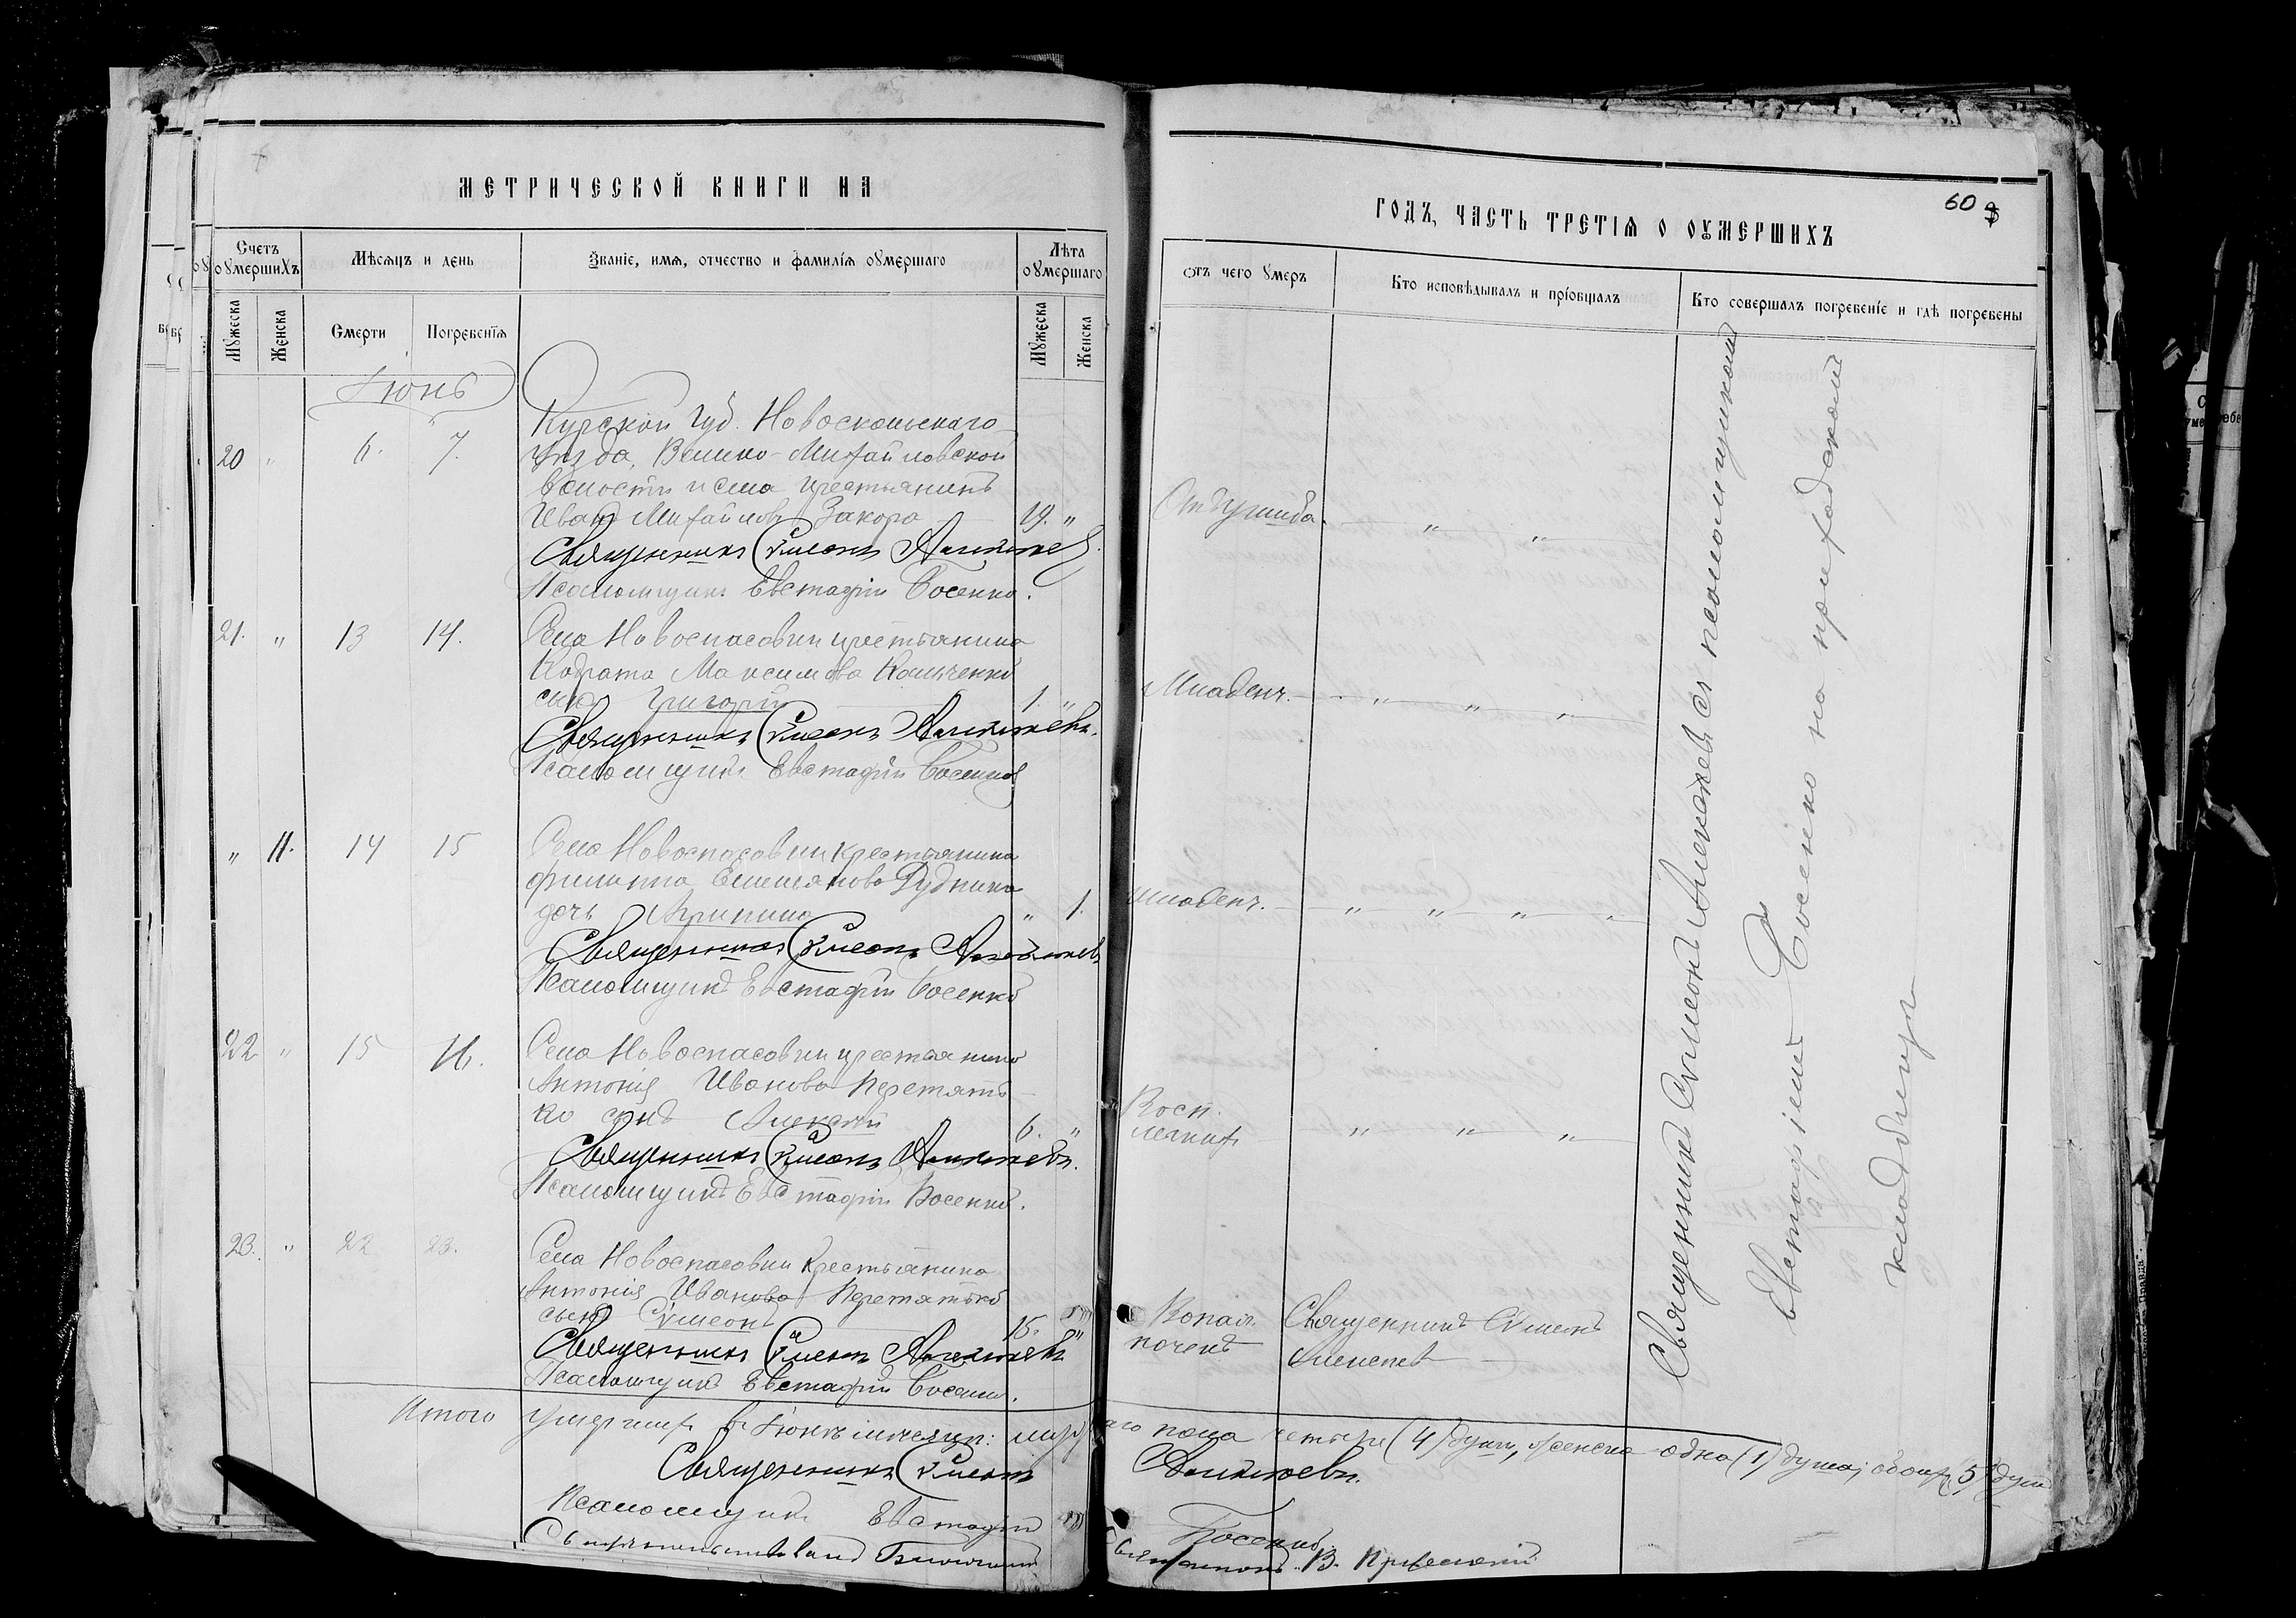 МЕТРИЧЕСКОЙ КНИГИ НА
Счетъ оумершихъ
Мѣсяцъ и день
Званіе, имя, отчество и фамилія оумершаго
Лѣта оумершаго
Мужеска
Женска
Смерти
Погребенія
Мужеска
Женска
Іюнь
20 " 6. 7.
Курской губ. Новоскольскаго
уѣзда, Велико-Михайловской
волости и села крестьянинъ
Иванъ Михайловъ Закора 19. "
Священникъ Сѵмеонъ Алексѣевъ.
Псаломщикъ Евстафій Босенко.
21. " 13 14.
Села Новоспасовки крестьянина
Кодрата Максимова
сынъ Григорій 1. "
Священникъ Сѵмеонъ Алексѣевъ.
Псаломщикъ Евстафій Босенко
" 11. 14 15
Села Новоспасовки крестьянина
Филиппа Емельянова
дочь Агрипина " 1.
Священникъ Сѵмеонъ Алексѣевъ
Псаломщикъ Евстафій Босенко
22 " 15 16.
Села Новоспасовки крестьянина
Антонія Иванова Перетять-
ко сынъ Алексѣй 6. "
Священникъ Сѵмеонъ Алексѣевъ.
Псаломщикъ Евстафій Босенко.
23. " 22 23.
Села Новоспасовки крестьянина
Антонія Иванова Перетятько
сынъ Сѵмеонъ 15. "
Священникъ Сѵмеонъ Алексѣевъ
Псаломщикъ Евстафій Босенко.
Итого умершихъ въ Іюнѣ мѣсяцѣ:
Священникъ Сѵмеонъ
Псаломщикъ Евстафій
60
ГОДЪ, ЧАСТЬ ТРЕТІЯ О ОУМЕРШИХЪ
Отъ чего умеръ
Кто исповѣдывалъ и пріобщалъ
Кто совершалъ погребеніе и гдѣ погребены
" "
Младенч. " " "
Младенч. " " " "
Восп.
легкихъ " " "
почекъ
Священникъ Сѵмеонъ
Алексѣевъ
Священникъ Сѵмеонъ Алексѣевъ съ псаломщикомъ
Евстафіемъ Босенко на приходскомъ
кладбищѣ
пола четыре (4) души, женска одна (1) душа; обоихъ 5 душъ
Алексѣевъ.
Босенко.